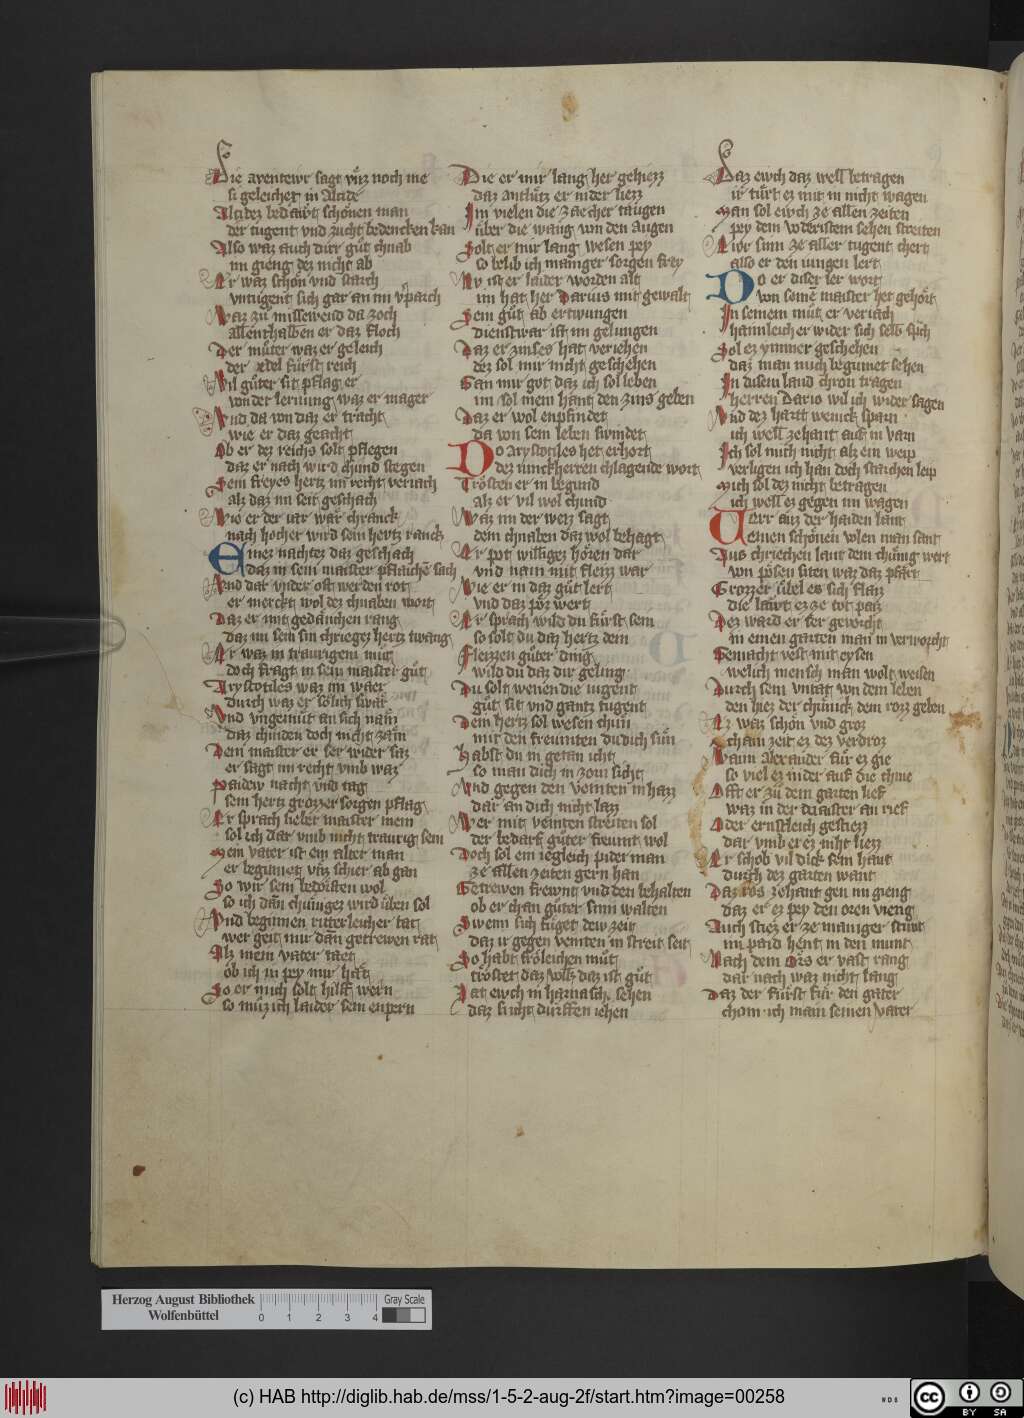 Die aventewr sagt vnz noch me
si geleichet in Alcide
Alcidez bedawt schonen man
der tugent vnd zucht bedencken kan
Also waz auch dirr gut chnab
im gieng dez nicht ab
Er waz schon vnd starch
vntugent sich gar an im v̓parch
Waz zu missewend da zoch
allenthalben er daz floch
Der muter waz er geleich
der edel furst reich
Vil guter sit pflag er
von der lernung waz er mager
Vnd da von daz er tracht
wie er daz geacht
Ob er dez reichs solt pflegen
daz er nach wird chund stegen
Sein freyes hertz im recht veriach
alz daz im seit geschach
Wie er der iar war chranck
nach hocher wird sein hertz ranck
Einez nachtez daz geschach
daz in sein maister pflaiche sach
Vnd dar vnder oft werden rot
er merckt wol dez chnaben wort
Daz er mit gedanchen rang
daz im sein sin chrieget hertz twang
Er waz in traurigem mut
doch fragt in sein maister gut
Arystotiles waz im waer
durch waz er solich swar
Vnd vngemut an sich nam
daz chinden doch nicht zam
Dem maister er ser wider saz
er sagt im recht vmb waz
Paidew nacht vnd tag
sein hertz grozzer sorgen pflag
Er sprach lieber maister mein
sol ich dar vmb nicht traurig sein
Mein vater ist ein alter man
er beginnet vnz schier ab gan
So wir sein bedorften wol
so ich dan chunigez wird uben sol
Vnd beginnen ritterleicher tat
wer geit mir dan getrewen rat
Alz mein vater taet
ob ich in pey mir hat
So er mich solt hilff wern
so muz ich laider sein enpern
Die er mir lang her gehiezz
daz anthutz er nider liezz
Im vielen die zaecher taugen
uber die wang von den augen
Solt er mir lang wesen pey
so belib ich mainger sorgen frey
Nv ist er laider worden alt
im hat her Darius mit gewalt
Sein gut ab ertwungen
dienstwar ist im gelungen
Daz er zinses hat veriehen
dez sol mir nicht geschehen
Gan mir got daz ich sol leben
im sol mein hant den zins geben
Daz er wol enpfindet
da von sein leben swindet
Do Arystotiles het erhort
dez iunckherren chlagende wort
Trosten er in begund
alz er vil wol chund
Waz im der weiz sagt
dem chnaben daz wol behagt
Er pot willigez horen dar
vnd nam mit fleizz war
Wie er in daz gut lert
vnd daz poz wert
Er sprach wild du furst sein
so solt du daz hertz dein
Fleizzen guter ding
wild du daz dir geling
Du solt wenen die iugent
gut sit vnd gantz tugent
Dein hertz sol wesen chun
mit den freunten du dich sun
Habst du in getan icht
so man dich in zorn sicht
Vnd gegen den veinten in hazz
dar an dich nicht lazz
Wer mit veinten streiten sol
der bedarf guter freunt wol
Doch sol ein iegleich pider man
ze allen zeiten gern han
Getrewen frewnt vnd den behalten
ob er chan guter sinn walten
Swenn sich fuget dew zeit
daz ir gegen veinten in streit seit
So habt froleichen mut
trostet daz volk daz ist gut
Lat ewch in harnasch sehen
daz si icht durffen iehen
Daz ewch daz well betragen
ir turt ez mit in nicht wagen
Man sol ewch ze allen zeiten
pey dem voderistem sehen streiten
Ewr sinn ze aller tugent chert
also er den iungen lert
Do er diser ler wort
von seine maister het gehort
In seinem mut er veriach
haimleich er wider sich selb sprach
Sol ez ymmer geschehen
daz man mich beginnet sehen
In disem land chron tragen
herren Dario wil ich wider sagen
Vnd dez hartt wenick sparn
ich well zehant auf in varn
Ich sol mich nicht alz ein weip
verligen ich han doch starchen leip
Mich sol dez nicht betragen
ich well ez gegen im wagen
Verr auz der haiden lant
einen schonen volen man sant
Auz chriechen lant dem chunig wert
von posen siten waz daz pfart
Grozzer ubel es sich flaiz
die lawt ez ze tot paiz
Dez ward er ser geworcht
in einen garten man in verworcht
Gemacht vest mit eysen
welich mensch man wolt weisen
Durch sein vntat von dem leben
den hiez der chunick dem rozz geben
Er waz schon vnd groz
ze chain zeit ez dez verdroz
Wann Alexander fur ez gie
so viel ez nider auf die chnie
Offt er zu dem garten lief
waz in der maister an rief
Oder ernstleich gestiezz
dar vmb er ez niht liezz
Er schob vil dick sein haut
durch dez garten want
Daz ros zehant gen im gieng
daz er ez pey den oren vieng
Auch stiez er ze maniger stunt
im paid hent in den munt
Nach dem ors er vast rang
dar nach waz nicht lang
Daz der furst fur den gater
chom ich main seinen vater
Herzog August Bibliothek
Wolfenbüttel
0 1 2 3 4
Gray Scale
(c) HAB http://diglib.hab.de/mss/1-5-2-aug-2f/start.htm?image=00258
WDB
cc BY SA